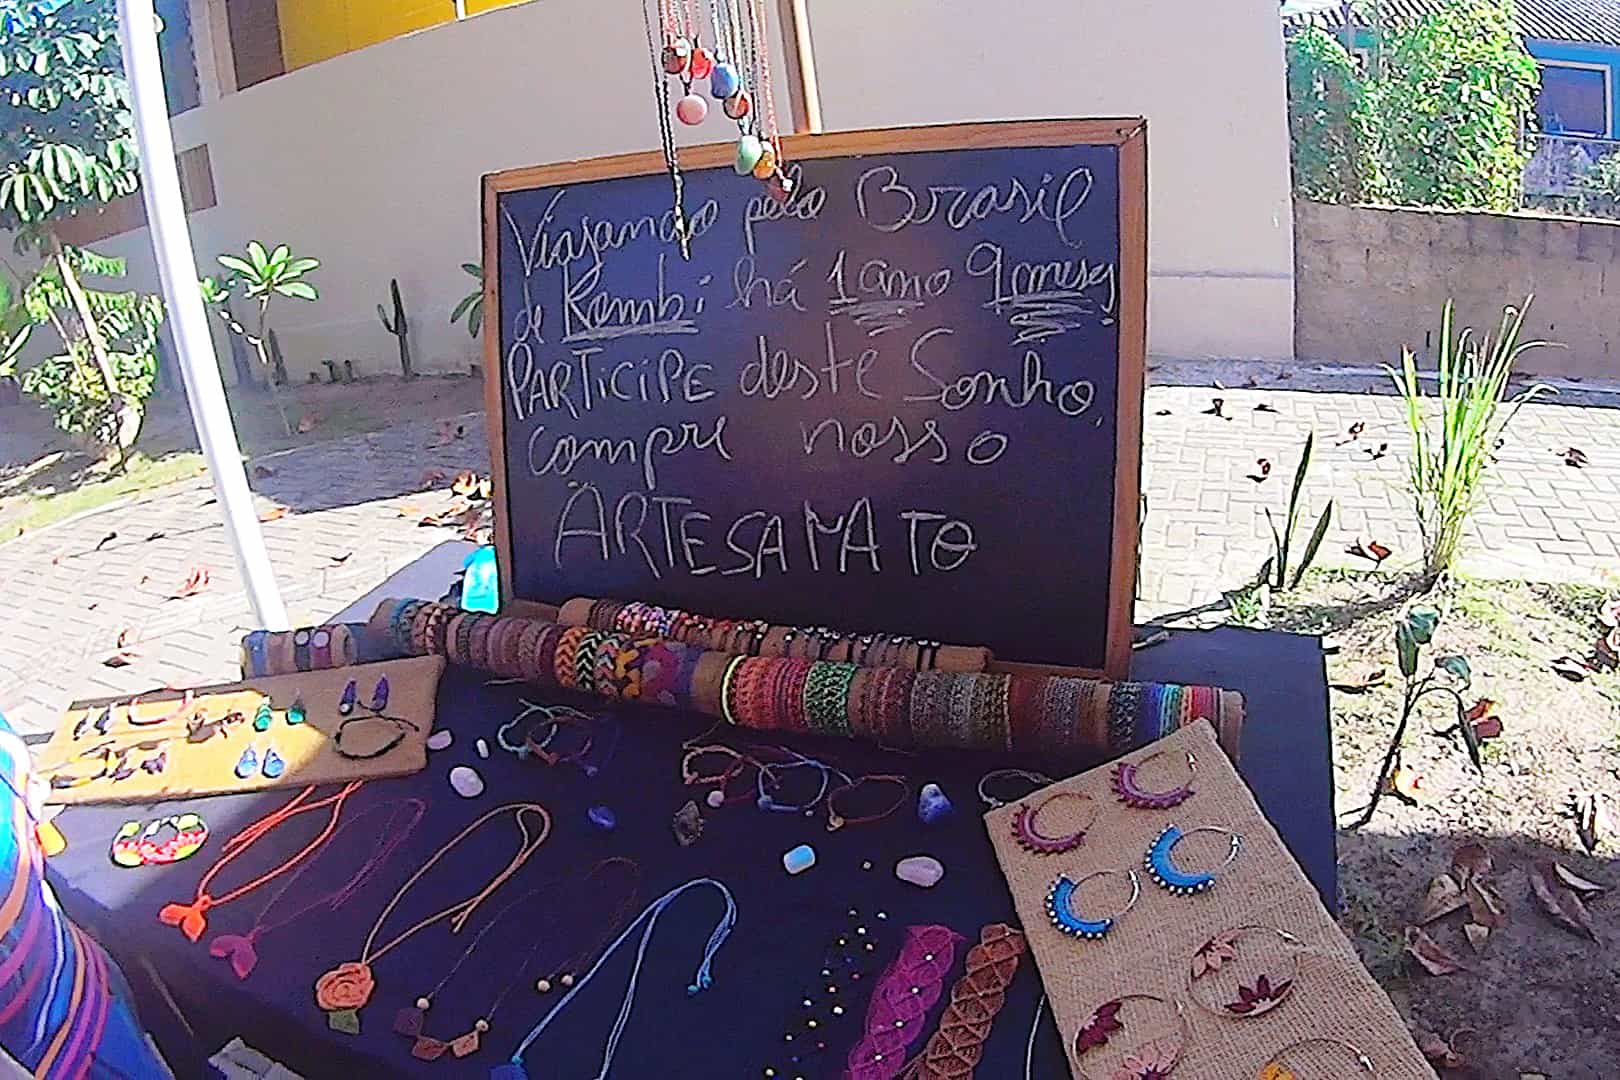 Viajando pelo Brasil
de Kombi há 1 ano 9 meses
PARTICIPE deste Sonho,
compre nosso
ARTESANATO